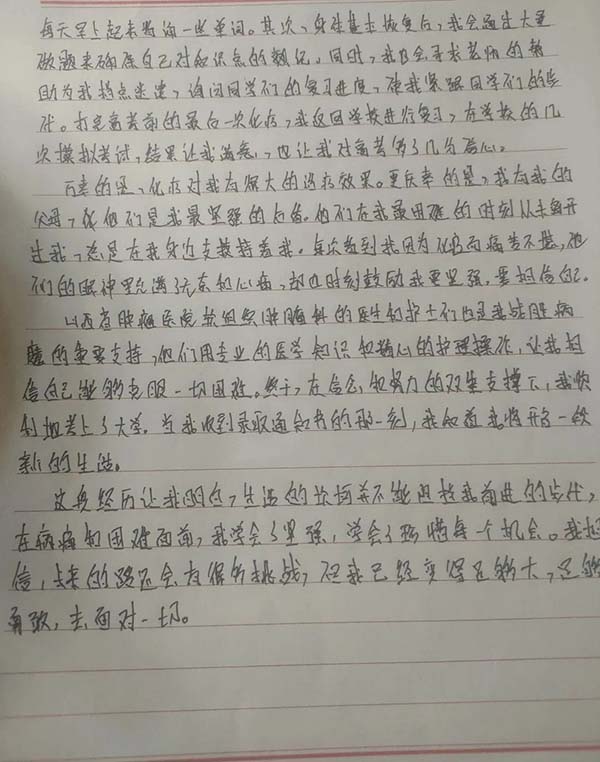 每天早上起来背诵一些单词。其次,身体基本恢复后,我会通过大量
做题来确保自己对知识点的熟记。同时,我也会寻求老师的帮
助为我指点迷津,询问同学们的复习进度,使我紧跟同学们的步
伐。打完高考前的最后一次化疗,我返回学校进行复习,在学校的几
次模拟考试,结果让我满意,也让我对高考多了几分信心。
万幸的是,化疗对我有很大的治疗效果。更庆幸的是,我有我的
父母,他们是我最坚强的后盾。他们在我最困难的时刻从未离开
过我,总是在我身边支持着我。每次看到我因为化疗而痛苦不堪,他
们的眼神里充满了无奈和心痛,却也时刻鼓励我要坚强,要相信自己。
山西省肿瘤医院软组织肿瘤科的医生和护士们也是我战胜病
魔的重要支持,他们用专业的医学知识和精心的护理操作,让我相
信自己能够克服一切困难。终于,在信念和努力的双重支撑下,我顺
利地考上了大学。当我收到录取通知书的那一刻,我知道我将开启一段
新的生活。
这段经历让我明白,生活的坎坷并不能阻挡我前进的步伐,
在病痛和困难面前,我学会了坚强,学会了珍惜每一个机会。我相
信,未来的路还会有很多挑战,但我已经变得足够大,足够
勇敢,去面对一切。